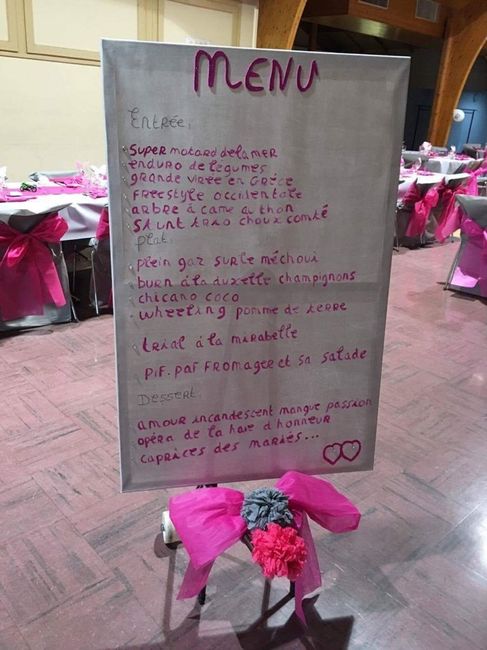 MENU
Entrée.
Super motard de la mer
enduro de légumes
grande virée en Grèce
Freestyle occidentale
arbre à came au thon
Stunt trio choux comté
plat.
plein gaz sur le méchoui
burn à la duxelle champignons
chicano coco
wheeling pomme de terre
trial à la mirabelle
Pif. paf Fromager et sa salade
Dessert.
amour incandescent mangue passion
opéra de la haie d'honneur
caprices des mariés...